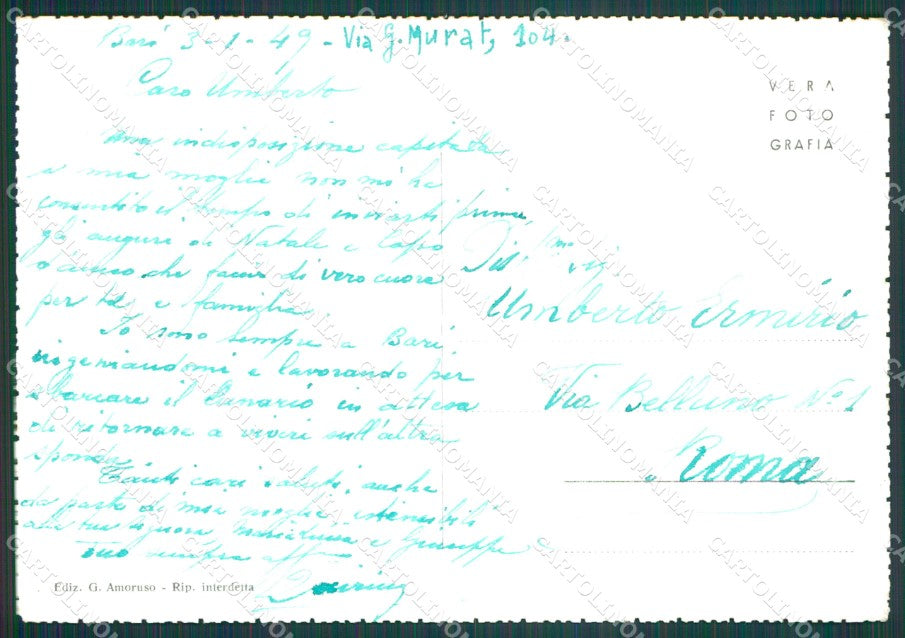 Bari 3-1-49 - Via G. Murat, 104.
Caro Umberto
Una indisposizione capitata
a mia moglie non mi ha
consentito il tempo di inviarti prima
gli auguri di Natale e Capo
che facio di vero cuore
per te e famiglia.
Io sono sempre a Bari
ingegnandomi e lavorando per
sbarcare il lunario in attesa
di ritornare a vivere sull'altra
sponda.
Tanti cari saluti, anche
da parte di mia moglie estensibili
alla tua signora, e Giuseppe
tuo sempre aff
VERA
FOTO
GRAFIA
Umberto Ermirio
Via Belluno No 1
Roma
Ediz. G. Amoruso - Rip. interdetta
CARTOLINOMANIA